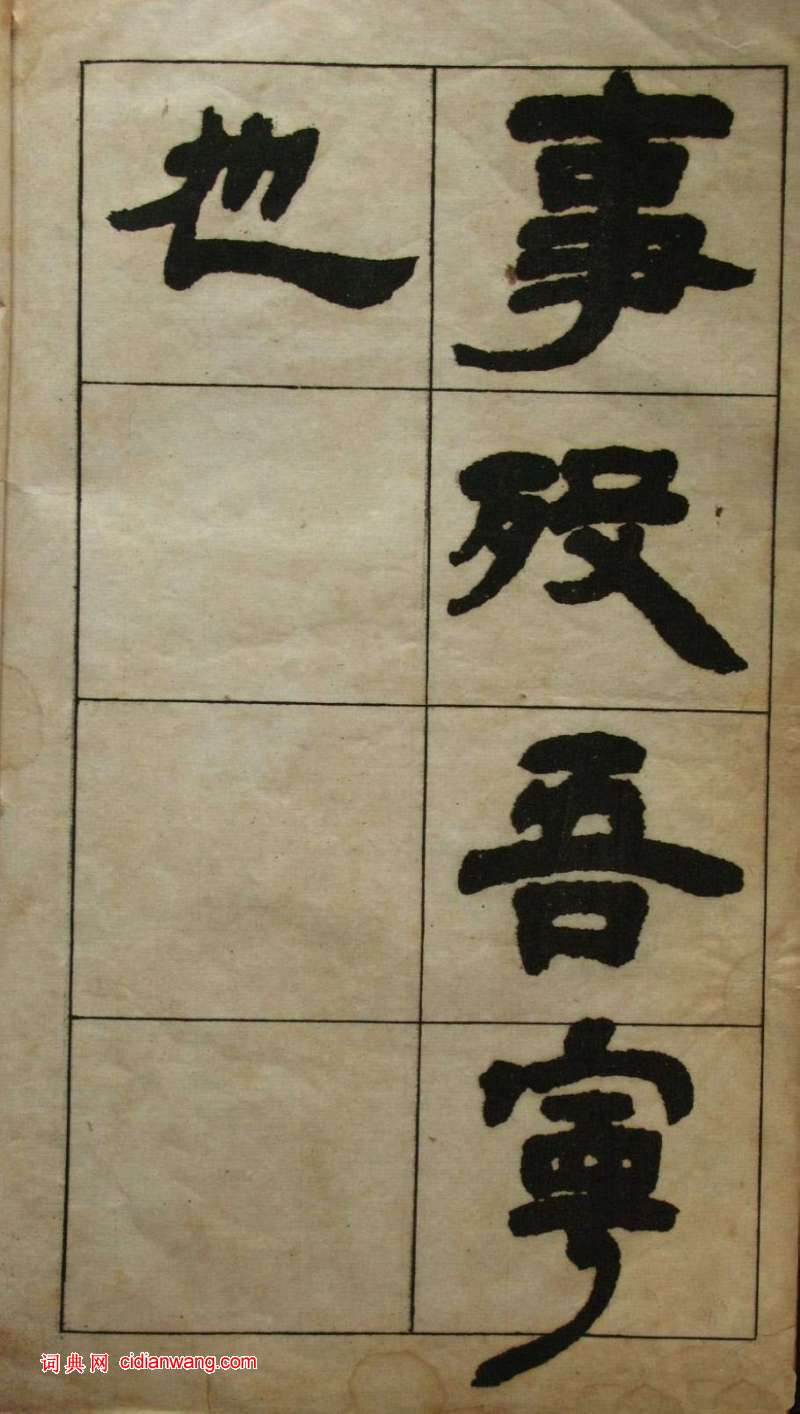 事殁吾寜
也
词典网 cidianwang.com